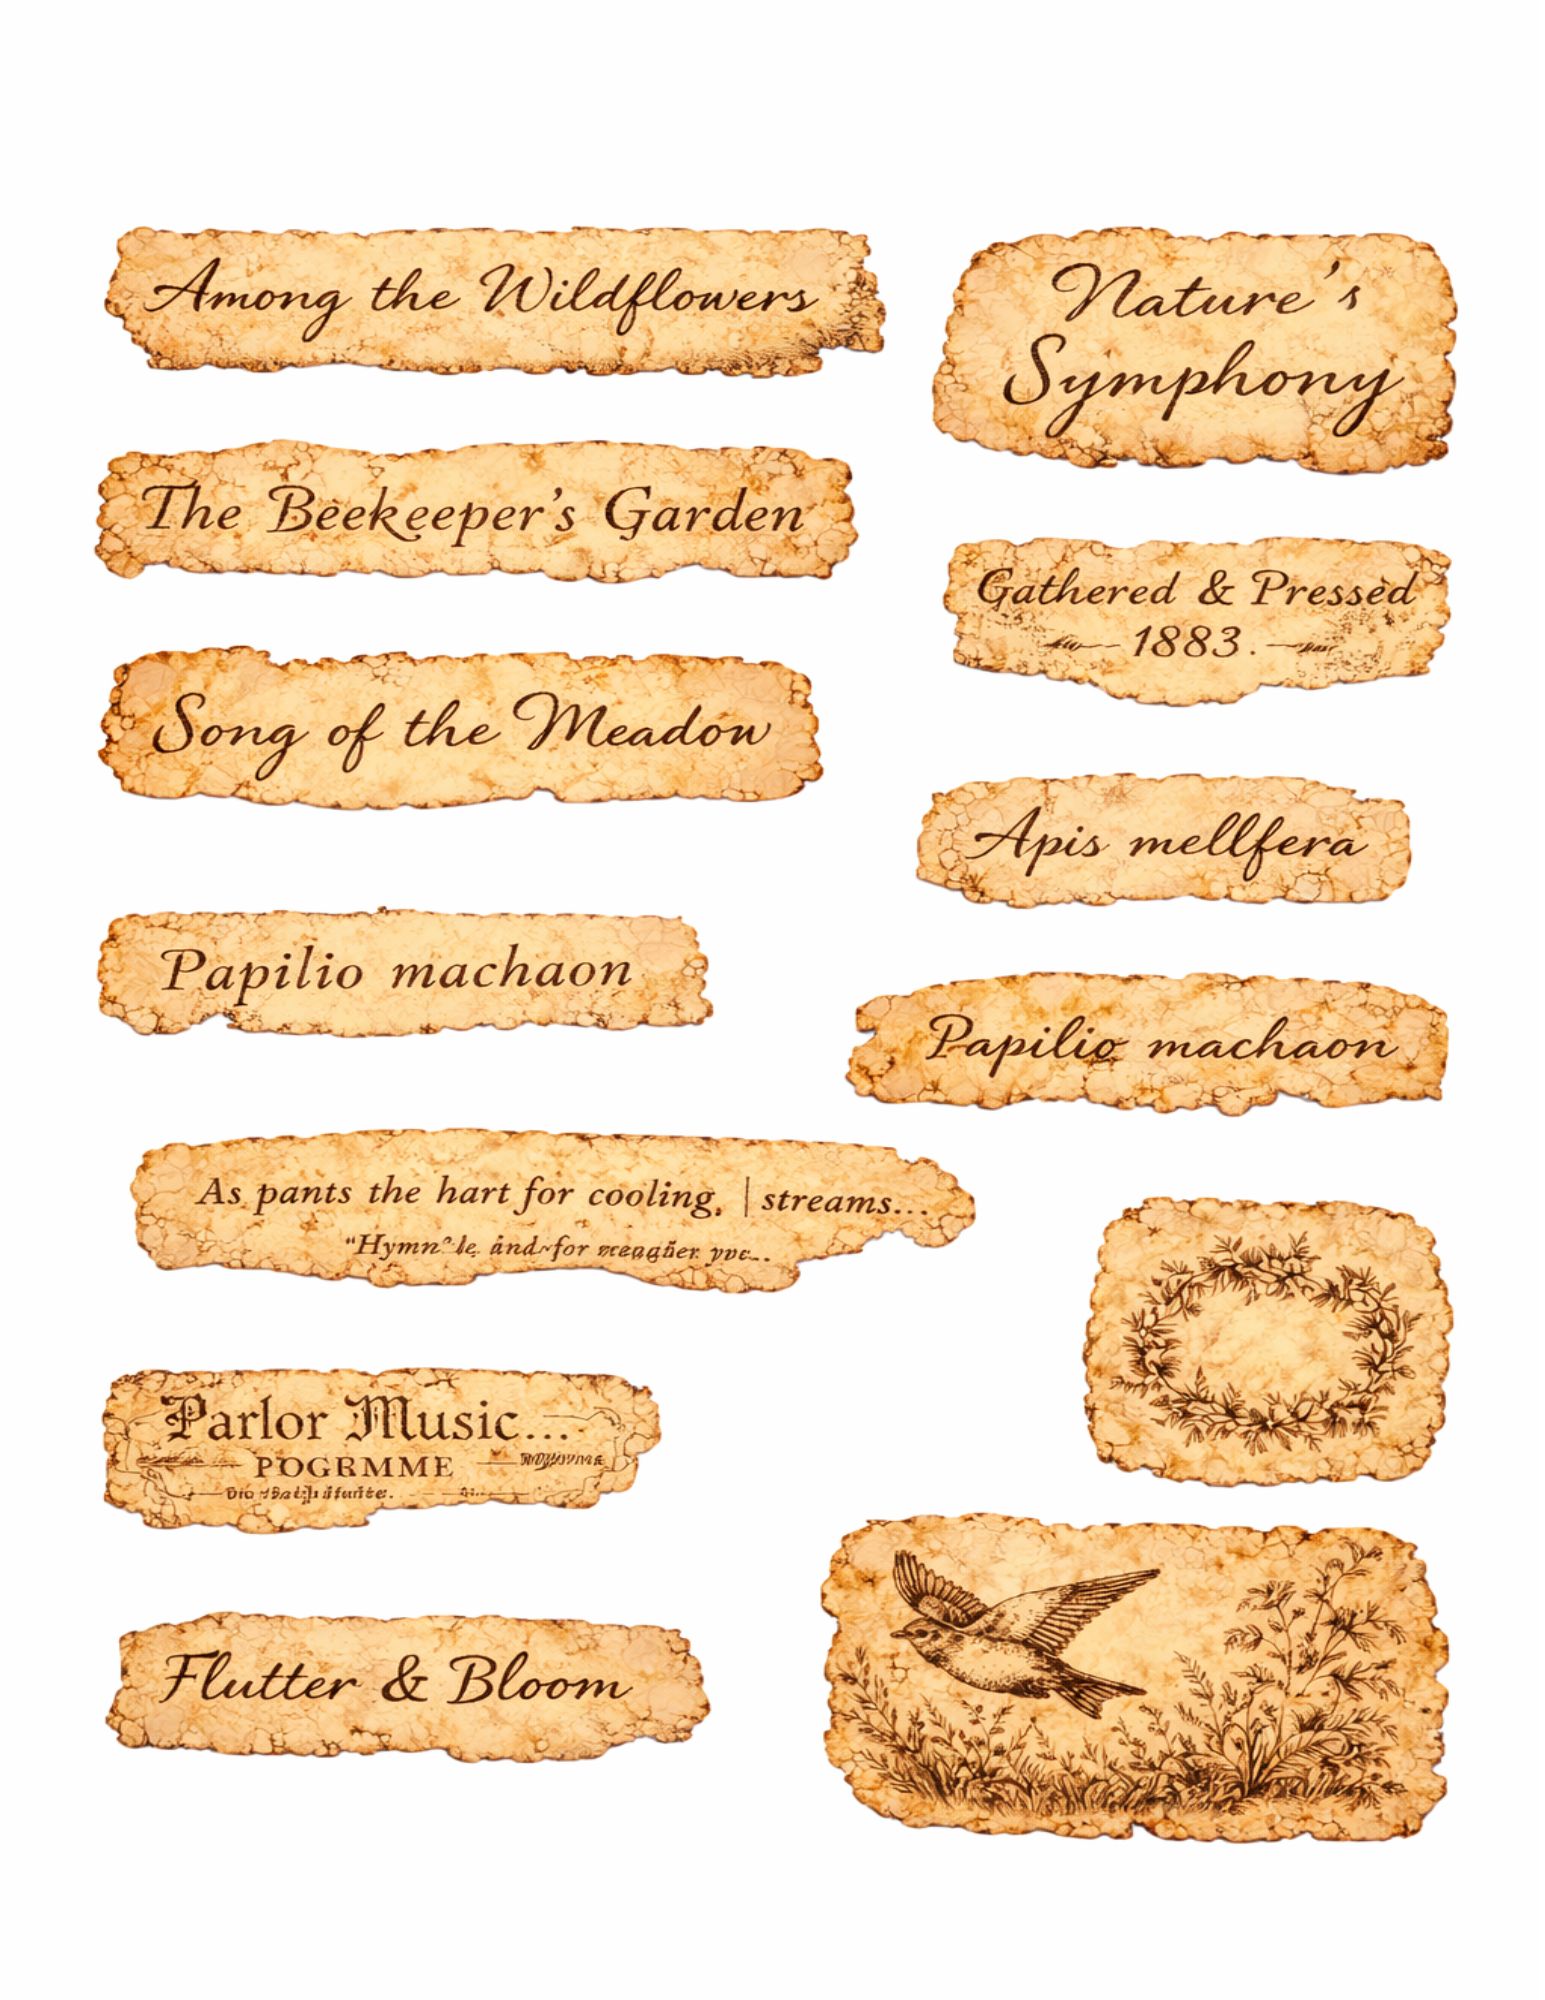 Among the Wildflowers
Nature's
Symphony
The Beekeeper's Garden
Gathered & Pressed
1883.
Song of the Meadow
Apis mellfera
Papilio machaon
Papilio machaon
As pants the hart for cooling, | streams...
"Hymn
Parlor Music...
POGRMME
Flutter & Bloom